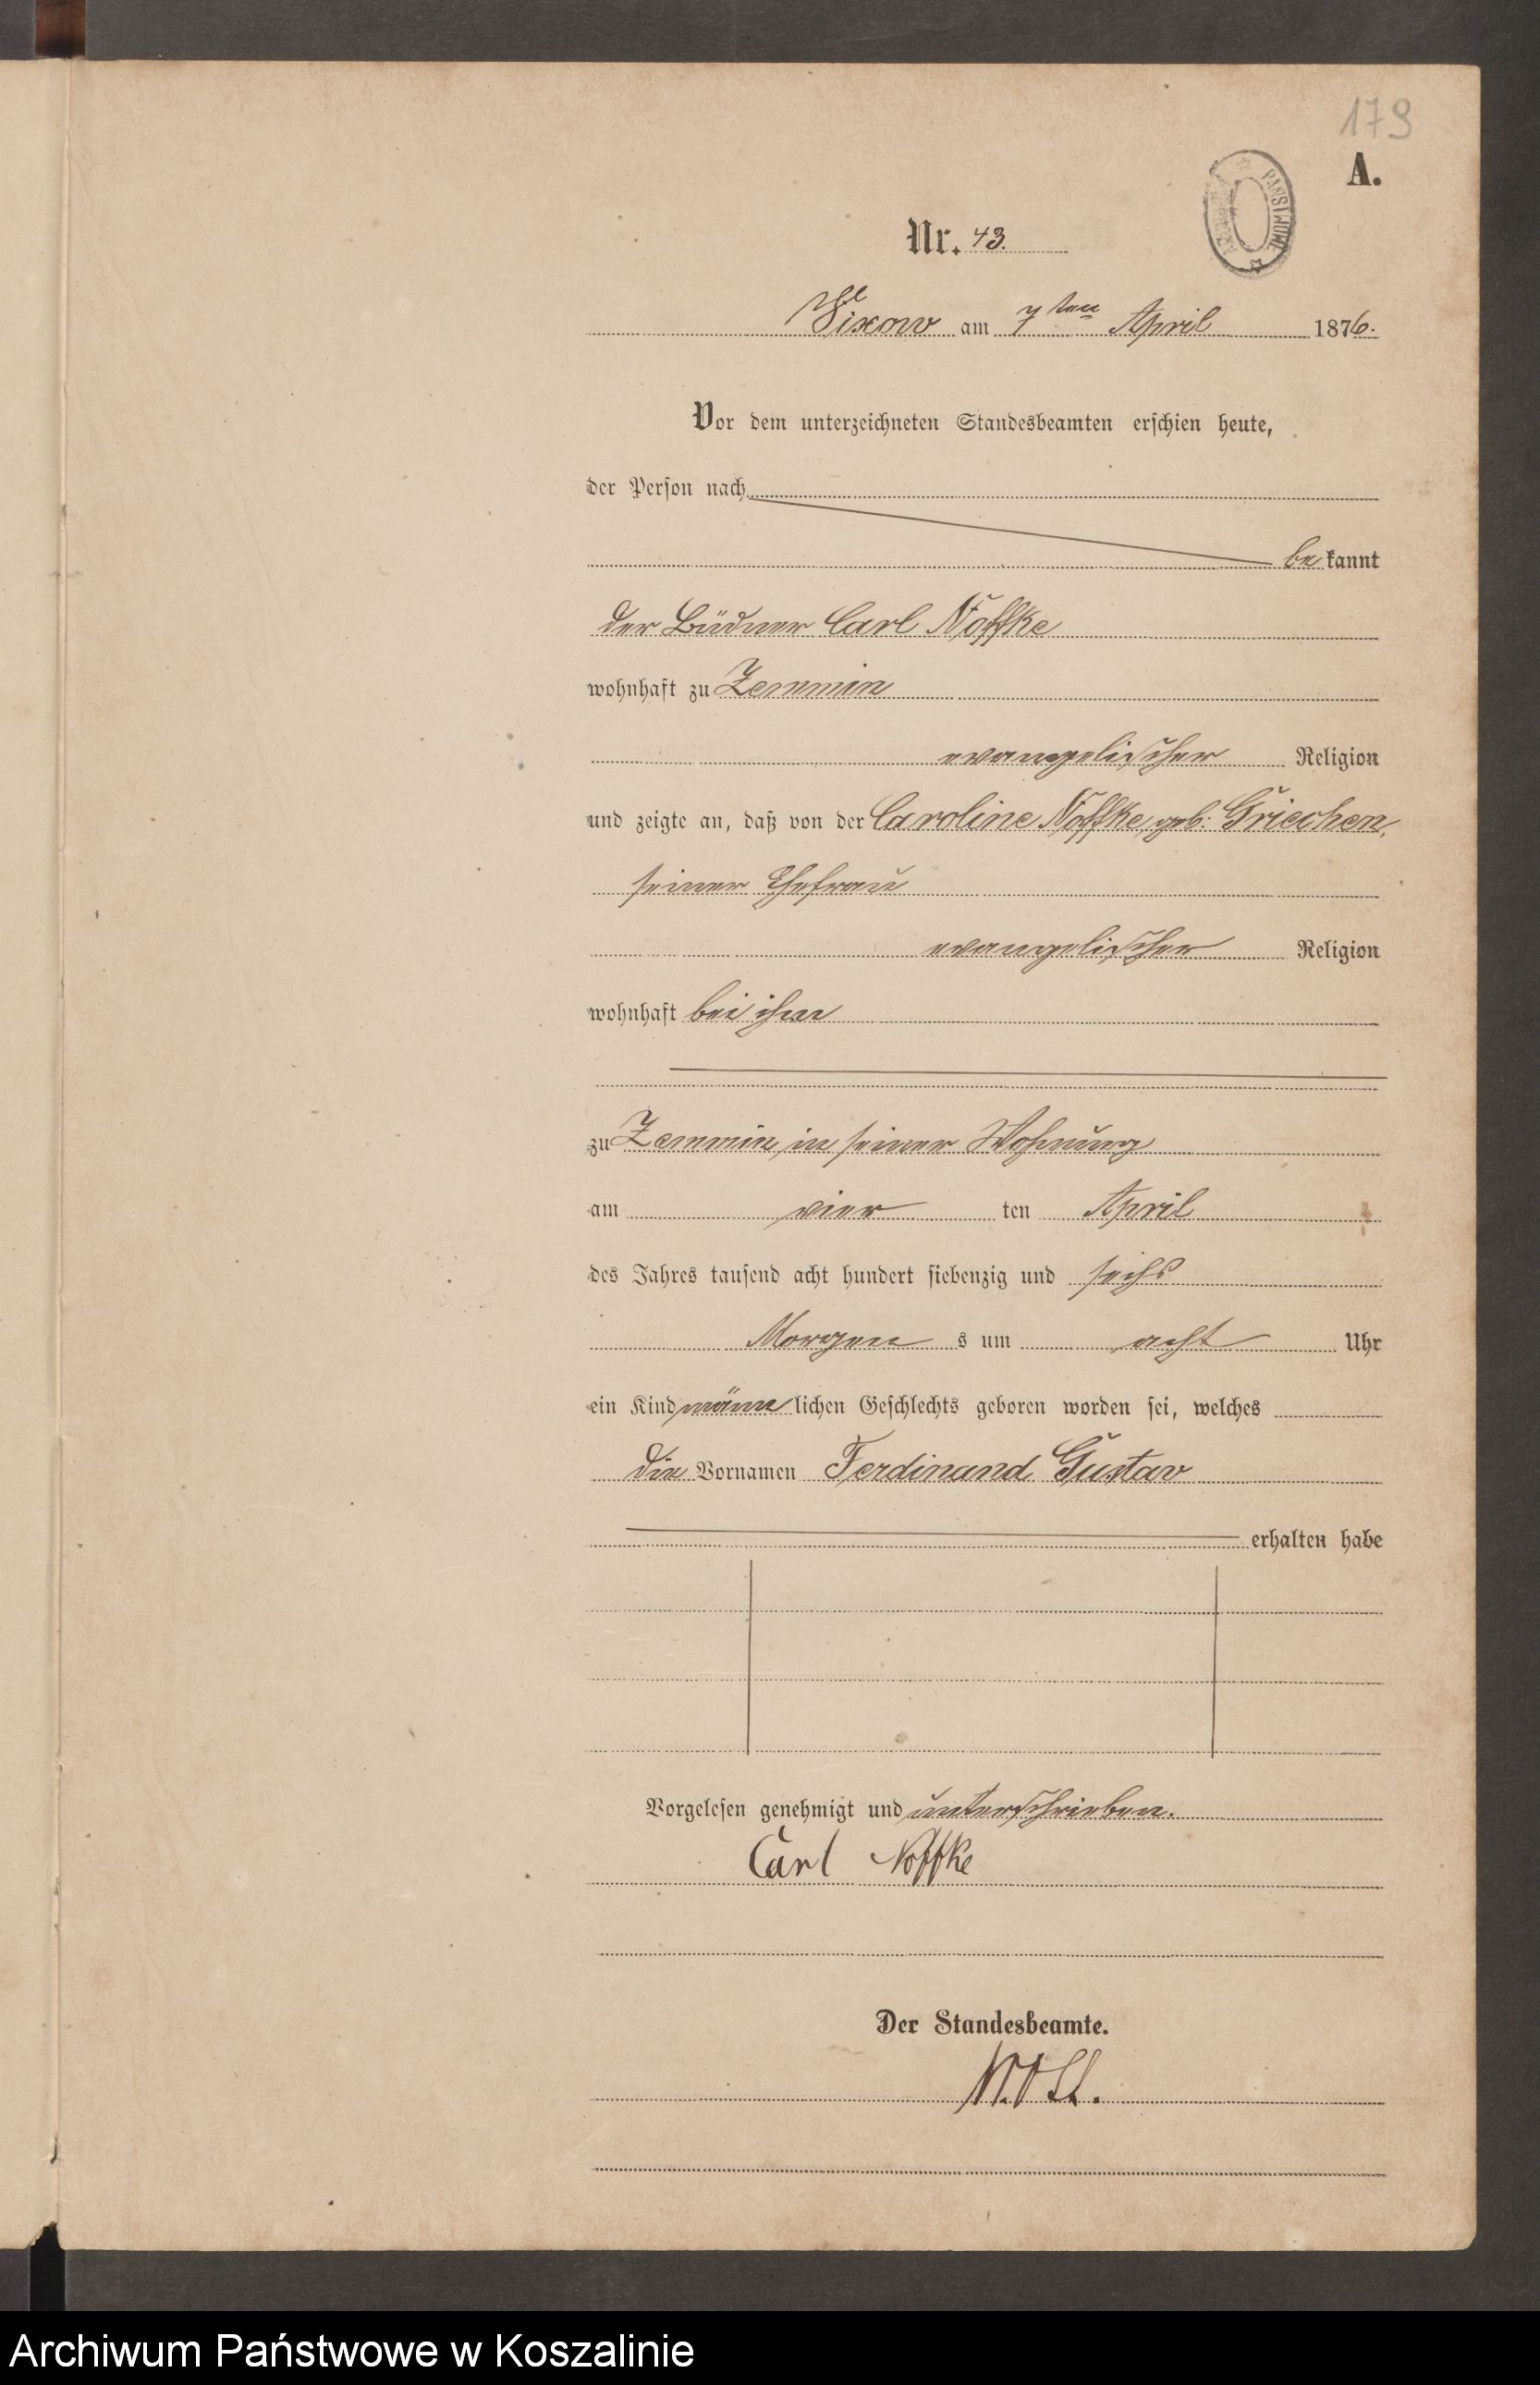 179
A.
PAŃSTWOWE
Nr. 43.
Wixow am 7ten April 1876.
Vor dem unterzeichneten Standesbeamten erschien heute,
der Person nach
bekannt
der Büdner Carl Noffke
wohnhaft zu Zemmin
evangelischer Religion
und zeigte an, daß von der Caroline Noffke, geb: Griechen,
seiner Ehefrau
evangelischer Religion
wohnhaft bei ihm
zu Zemmin in seiner Wohnung
am vier ten April
des Jahres tausend acht hundert siebenzig und sechs
Morgen s um acht Uhr
ein Kind männlichen Geschlechts geboren worden sei, welches
die Vornamen Ferdinand Gustav
erhalten habe
Vorgelesen genehmigt und unterschrieben.
Carl Noffke
Der Standesbeamte.
Archiwum Państwowe w Koszalinie